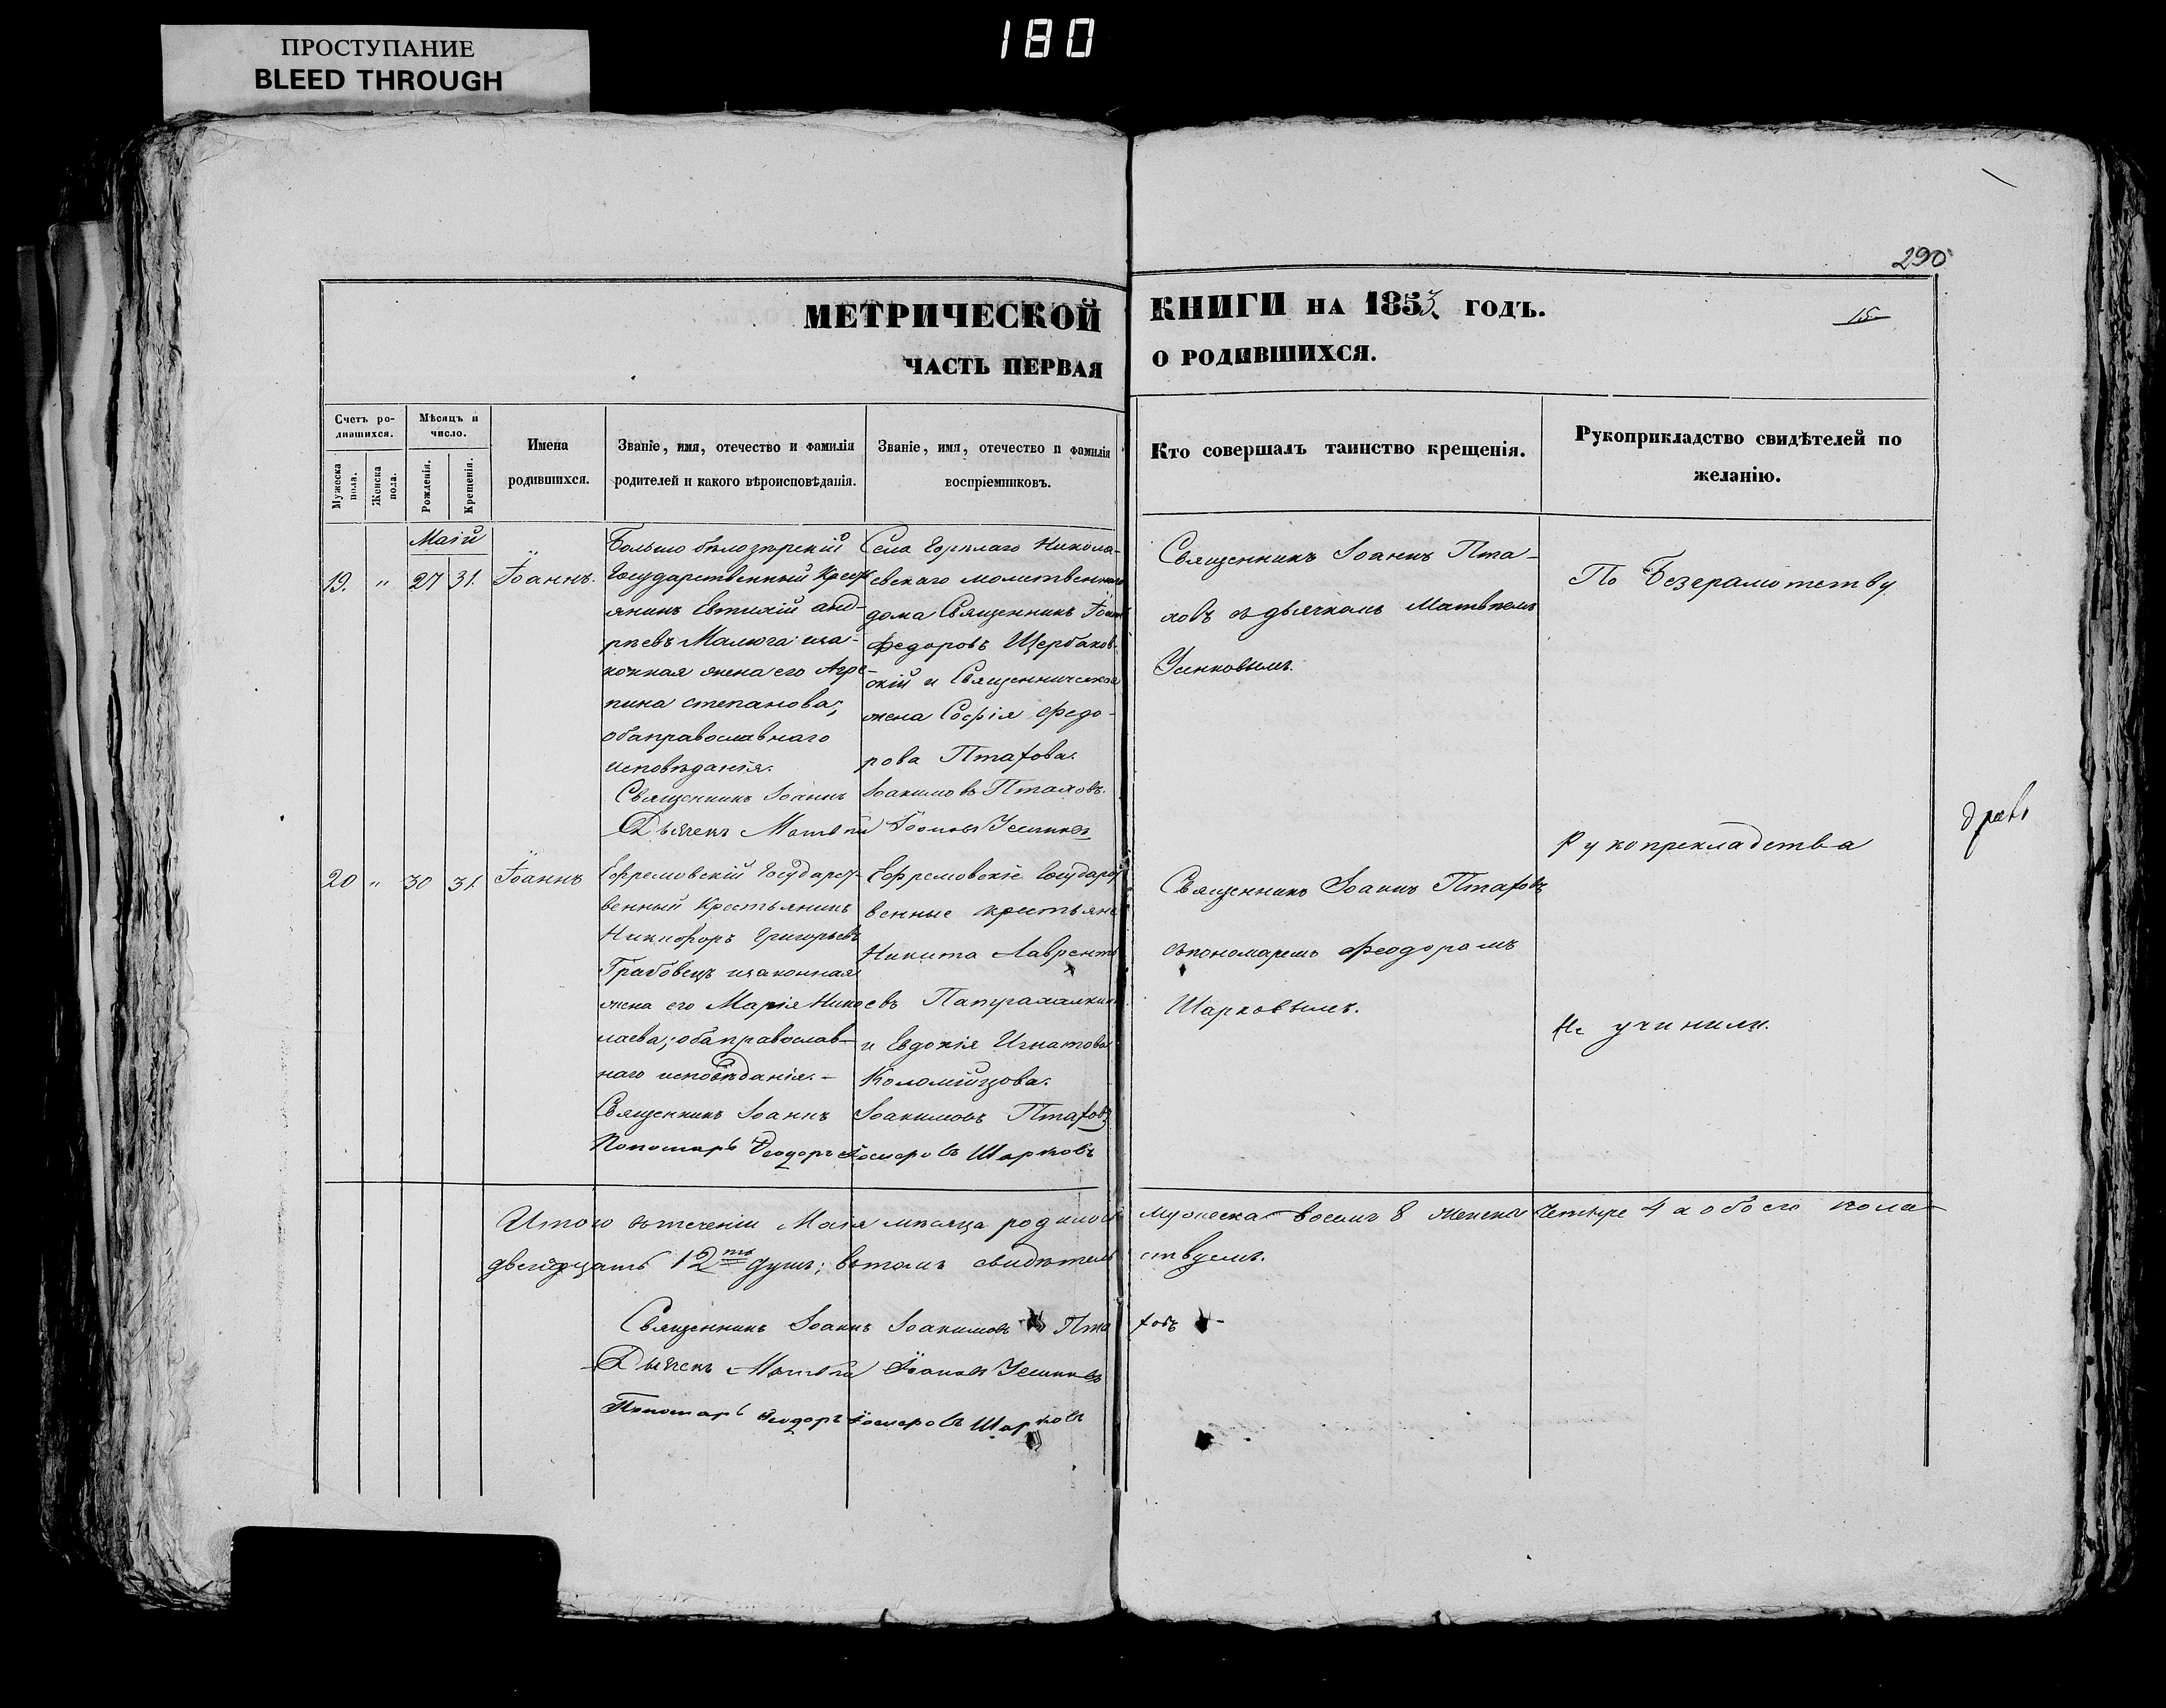 180
ПРОСТУПАНИЕ
BLEED THROUGH
290
МЕТРИЧЕСКОЙ КНИГИ НА 1853 ГОДЪ.
15
ЧАСТЬ ПЕРВАЯ О РОДИВШИХСЯ.
Счетъ ро-
дившихся.
Мужеска пола.
Женска пола.
Мѣсяцъ и
число.
Рожденія.
Крещенія.
Имена
родившихся.
Званіе, имя, отечество и фамилія
родителей и какого вѣроисповѣданія.
Званіе, имя, отечество и фамилія
воспріемниковъ.
Кто совершалъ таинство крещенія.
Рукоприкладство свидѣтелей по
желанію.
Маій
19. " 27 31. Іоаннъ.
Больше бѣлозѣрскій
Государственный Крест
янинъ Евтихій Анд-
рѣевъ Малюга иза-
конная жена его Агре-
пина Степанова;
обаправославнаго
исповѣданія.
Села Горѣлаго Никола-
евскаго молитвеннаго
дома Священникъ Іоан
Федоровъ Щербаков-
скій и Священническая
жена Софія Федо-
рова Птахова.
Священникъ Іоаннъ Іоакимовъ Птаховъ.
Дьячекъ Матвѣй Іоановъ Усенковъ
Священникъ Іоаннъ Пта-
ховъ съ дьячкомъ Матвѣемъ
Усенковымъ.
По Безграмотству
20 " 30 31. Іоаннъ
Ефремовскій Государст-
венный Крестьянинъ
Никифоръ Григорьевъ
Грабовецъ изаконная
жена его Марія Нико
лаева; обаправослав-
наго исповѣданія.-
Ефремовскіе Государст
венные крестьяне
Никита Лаврентъ
евъ
и Евдокія Игнатова
Коломійцова.
Священникъ Іоаннъ Іоакимовъ Птаховъ
Пономарь Феодоръ Шарковъ
Священникъ Іоаннъ Птаховъ
съпономаремъ Феодоромъ
Шарковымъ.
рукоприкладства
Не учинили.
Итого вътеченіи Маія мѣсяца родилось мужеска восемь 8 женска четыре 4 а обоего пола
двенадцать 12ть душъ; вътомъ свидѣтельствуемъ.
Священникъ Іоаннъ Іоакимовъ Птаховъ
Дьячекъ Матвѣй Іоановъ Усенковъ
Пономарь Феодоръ Шарковъ